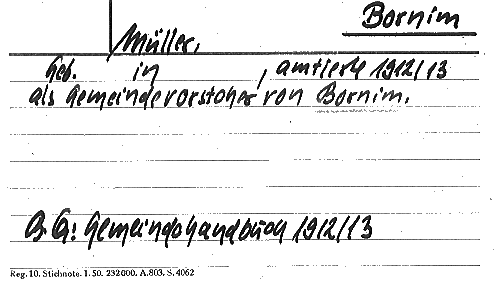 Bornim
Müller,
geb. in , amtierte 1912/13
als Gemeindevorsteher von Bornim.
Gemeindehandbuch 1912/13
Reg. 10. Stichnote. 1. 50. 232000. A. 803. S. 4062